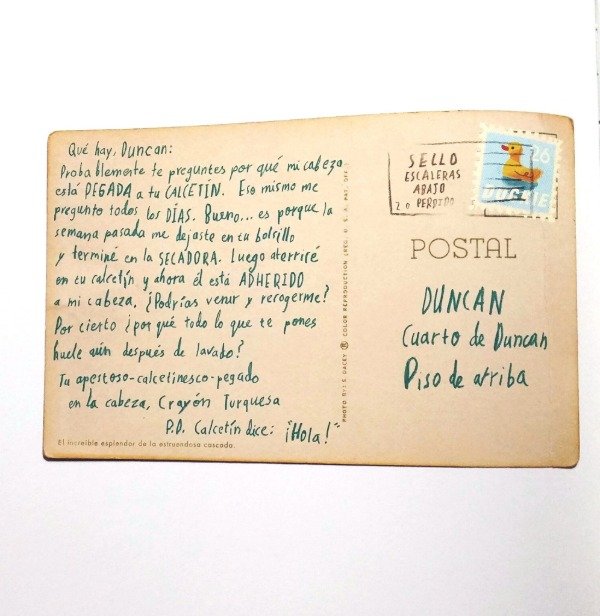 Qué hay, Duncan:
Probablemente te preguntes por qué mi cabeza
está PEGADA a tu CALCETÍN. Eso mismo me
pregunto todos los DÍAS. Bueno... es porque la
semana pasada me dejaste en tu bolsillo
y terminé en la SECADORA. Luego aterricé
en tu calcetín y ahora él está ADHERIDO
a mi cabeza, ¿Podrías venir y recogerme?
Por cierto ¿por qué todo lo que te pones
huele aún después de lavado?
Tu apestoso-calcetinesco-pegado
en la cabeza, Crayón Turquesa
P.D. Calcetín dice: ¡Hola!"
El increíble esplendor de la estruendosa cascada.
COLOR REPRODUCTION (REG. U.S.A. PAT. OFF.
SELLO
ESCALERAS
ABAJO
2 o PERDIDO
26
POSTAL
DUNCAN
Cuarto de Duncan
Piso de arriba